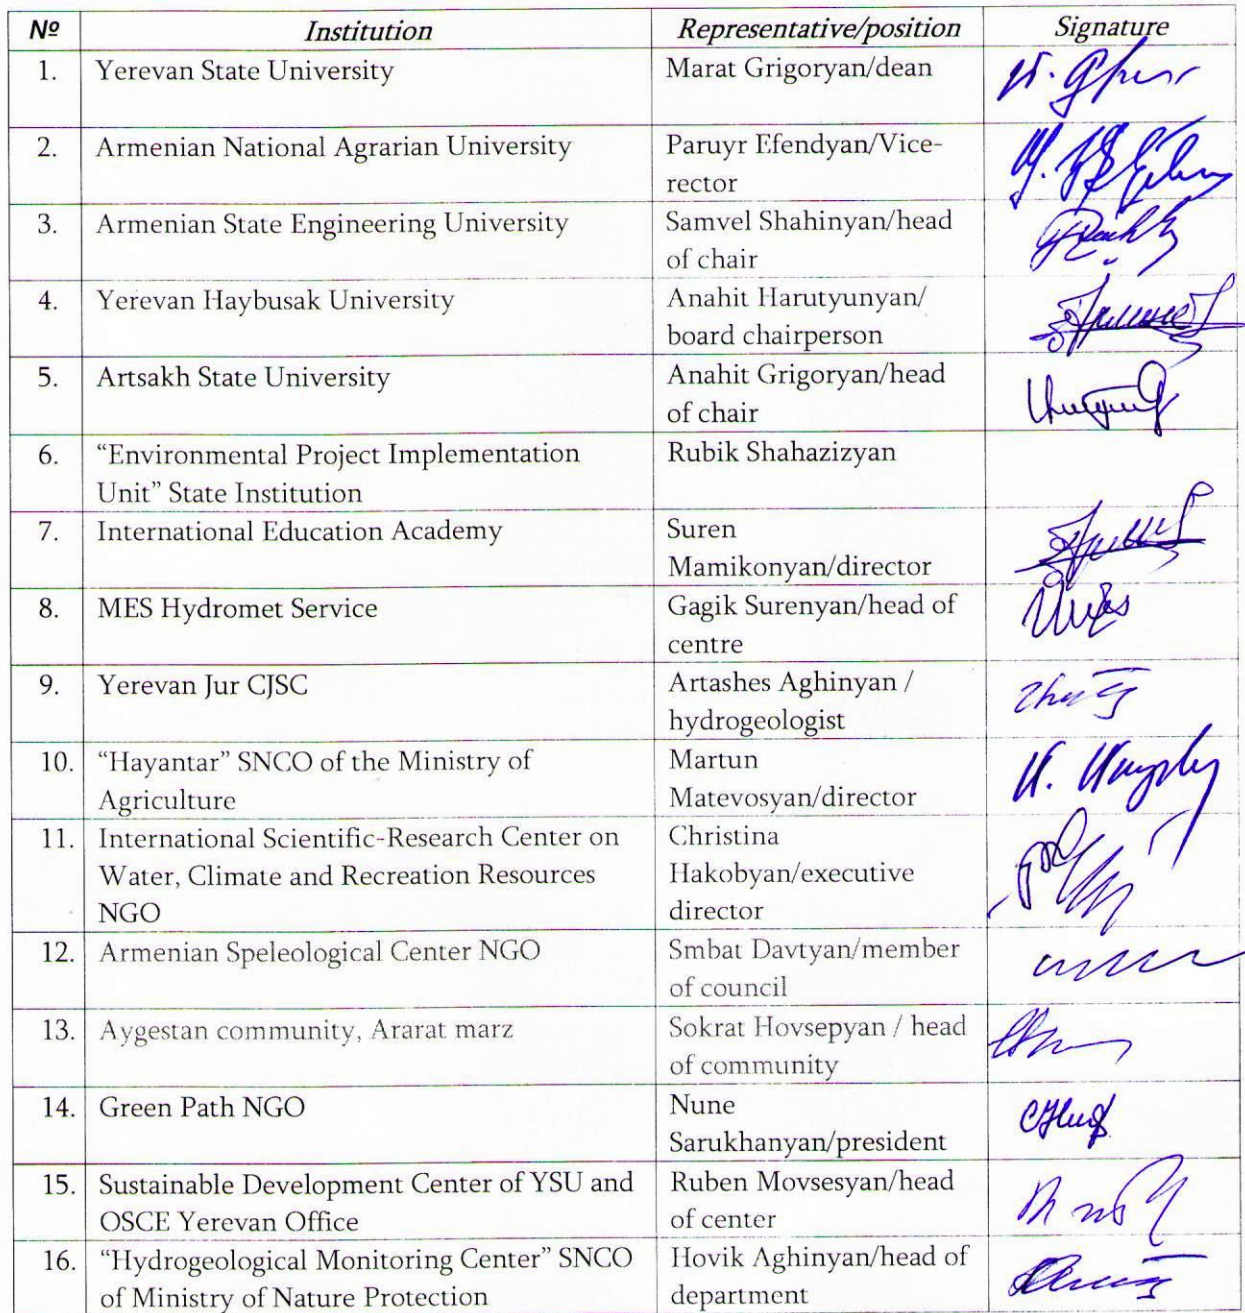 Nº Institution Representative/position Signature
1. Yerevan State University Marat Grigoryan/dean
2. Armenian National Agrarian University Paruyr Efendyan/Vice-
rector
3. Armenian State Engineering University Samvel Shahinyan/head
of chair
4. Yerevan Haybusak University Anahit Harutyunyan/
board chairperson
5. Artsakh State University Anahit Grigoryan/head
of chair
6. “Environmental Project Implementation Rubik Shahazizyan
Unit” State Institution
7. International Education Academy Suren
Mamikonyan/director
8. MES Hydromet Service Gagik Surenyan/head of
centre
9. Yerevan Jur CJSC Artashes Aghinyan /
hydrogeologist
10. “Hayantar” SNCO of the Ministry of Martun
Agriculture Matevosyan/director
11. International Scientific-Research Center on Christina
Water, Climate and Recreation Resources Hakobyan/executive
NGO director
12. Armenian Speleological Center NGO Smbat Davtyan/member
of council
13. Aygestan community, Ararat marz Sokrat Hovsepyan / head
of community
14. Green Path NGO Nune
Sarukhanyan/president
15. Sustainable Development Center of YSU and Ruben Movsesyan/head
OSCE Yerevan Office of center
16. “Hydrogeological Monitoring Center” SNCO Hovik Aghinyan/head of
of Ministry of Nature Protection department